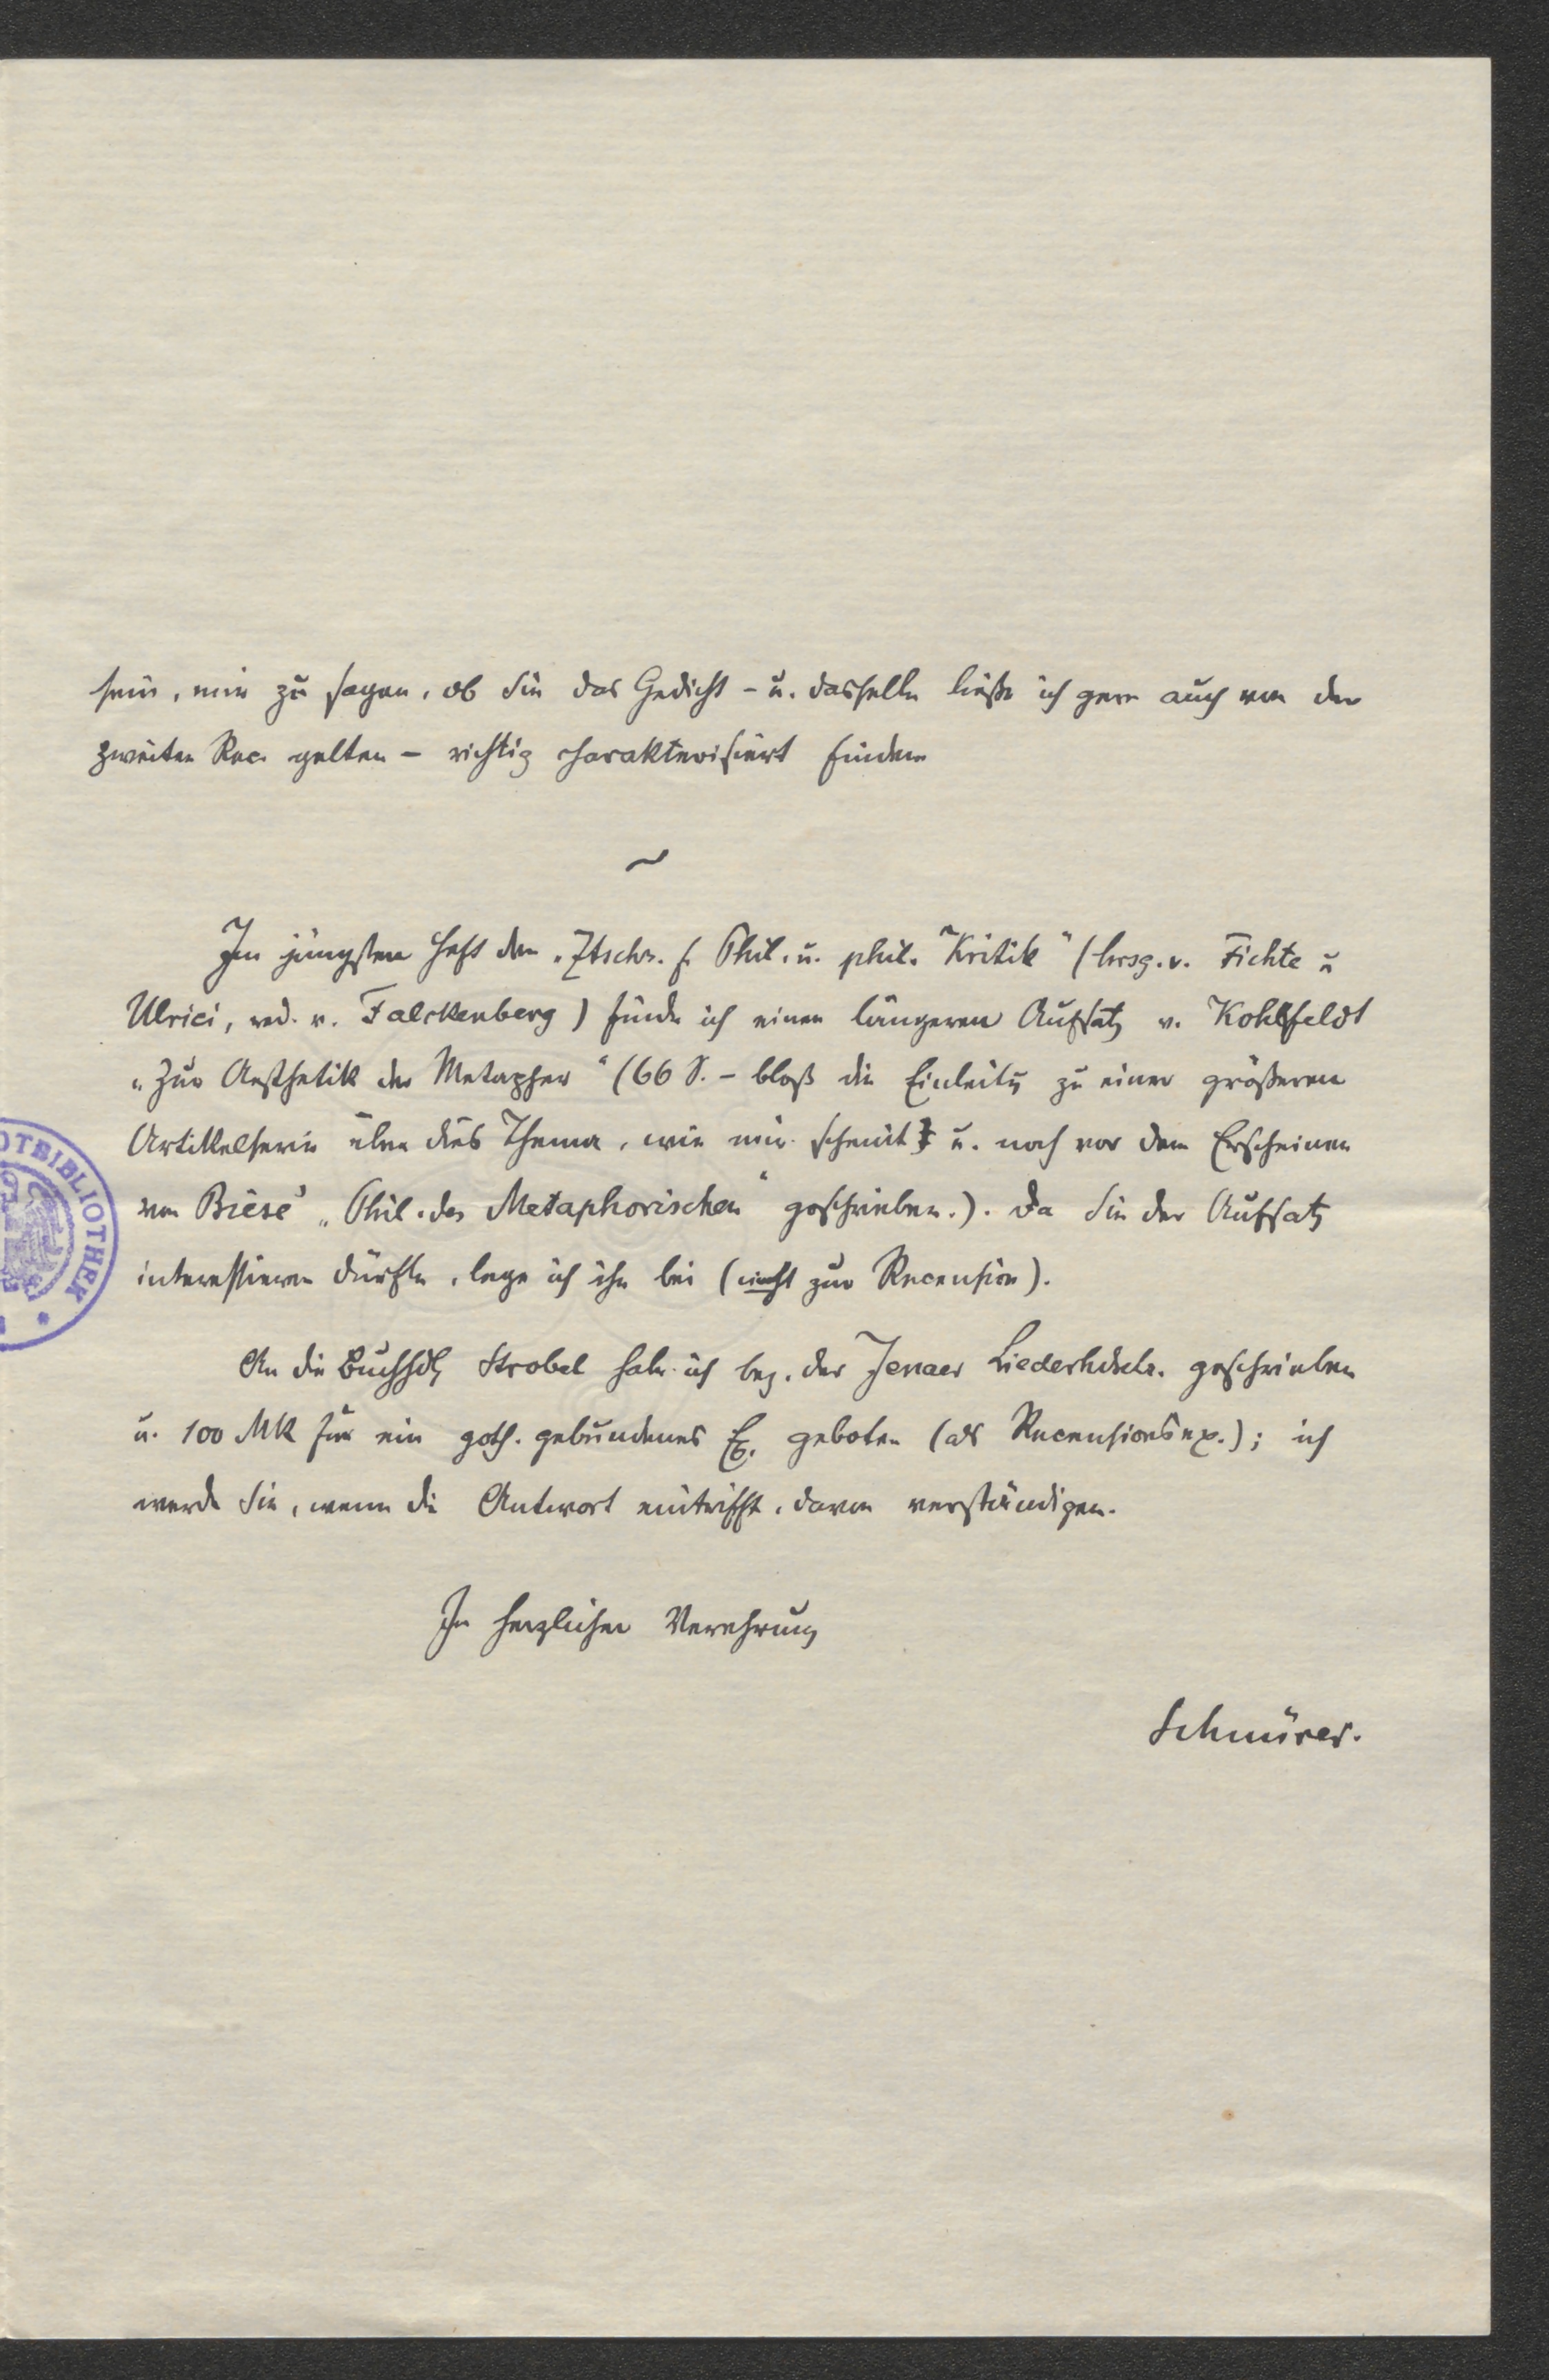 sein, mir zu sagen, ob Sie das Gedicht – u. dasselbe ließe ich gern auch von der
zweiten Rec. gelten – richtig charakterisiert finden
~
Im jüngsten Heft der „Ztschr. f. Phil. u. phil. Kritik“ (hrsg. v. Fichte u
Ulrici, red. v. Falckenberg) finde ich einen längeren Aufsatz v. Kohlfeldt
„Zur Aesthetik der Metapher“ (66 S. – bloß die Einleitg zu einer größeren
Artikelserie über dies Thema, wie mir scheint u. noch vor dem Erscheinen
von Biese' „Phil. des Metaphorischen“ geschrieben.). Da Sie der Aufsatz
interessieren dürfte, lege ich ihn bei (nicht zur Recension).
An die Buchhdlg Strobel habe ich bez. der Jenaer Liederhdschr. geschrieben
u. 100 Mk für ein goth. gebundenes Ex. geboten (als Recensionsex.); ich
werde Sie, wenn die Antwort eintrifft, davon verständigen.
In herzlicher Verehrung
Schnürer.
OTBIBLIOTHEK